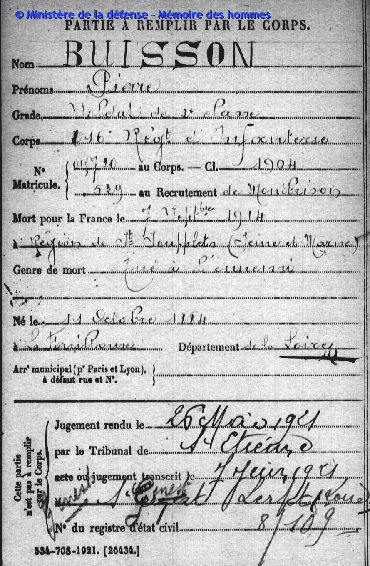 © Ministère de la défense - Mémoire des hommes
PARTIE À REMPLIR PAR LE CORPS.
Nom BUISSON
Prénoms Pierre
Grade Soldat de 2e classe
Corps Régt d'Infanterie
N° Matricule. au Corps. — Cl. 1904
529 au Recrutement de Montbrison
Mort pour la France le 7 Septbre 1914
à Région de St Soupplets (Seine et Marne)
Genre de mort Tué à l'ennemi
Né le 11 Octobre 1884
à Département de la Loire
Arrt municipal (pr Paris et Lyon), à défaut rue et N°.
Cette partie n'est pas à remplir par le Corps.
Jugement rendu le 26 Mai 1921
par le Tribunal de St Etienne
acte ou jugement transcrit le 7 Juin 1921
St Genest Lerpt Loire
N° du registre d'état civil
534-708-1921. [26434.]